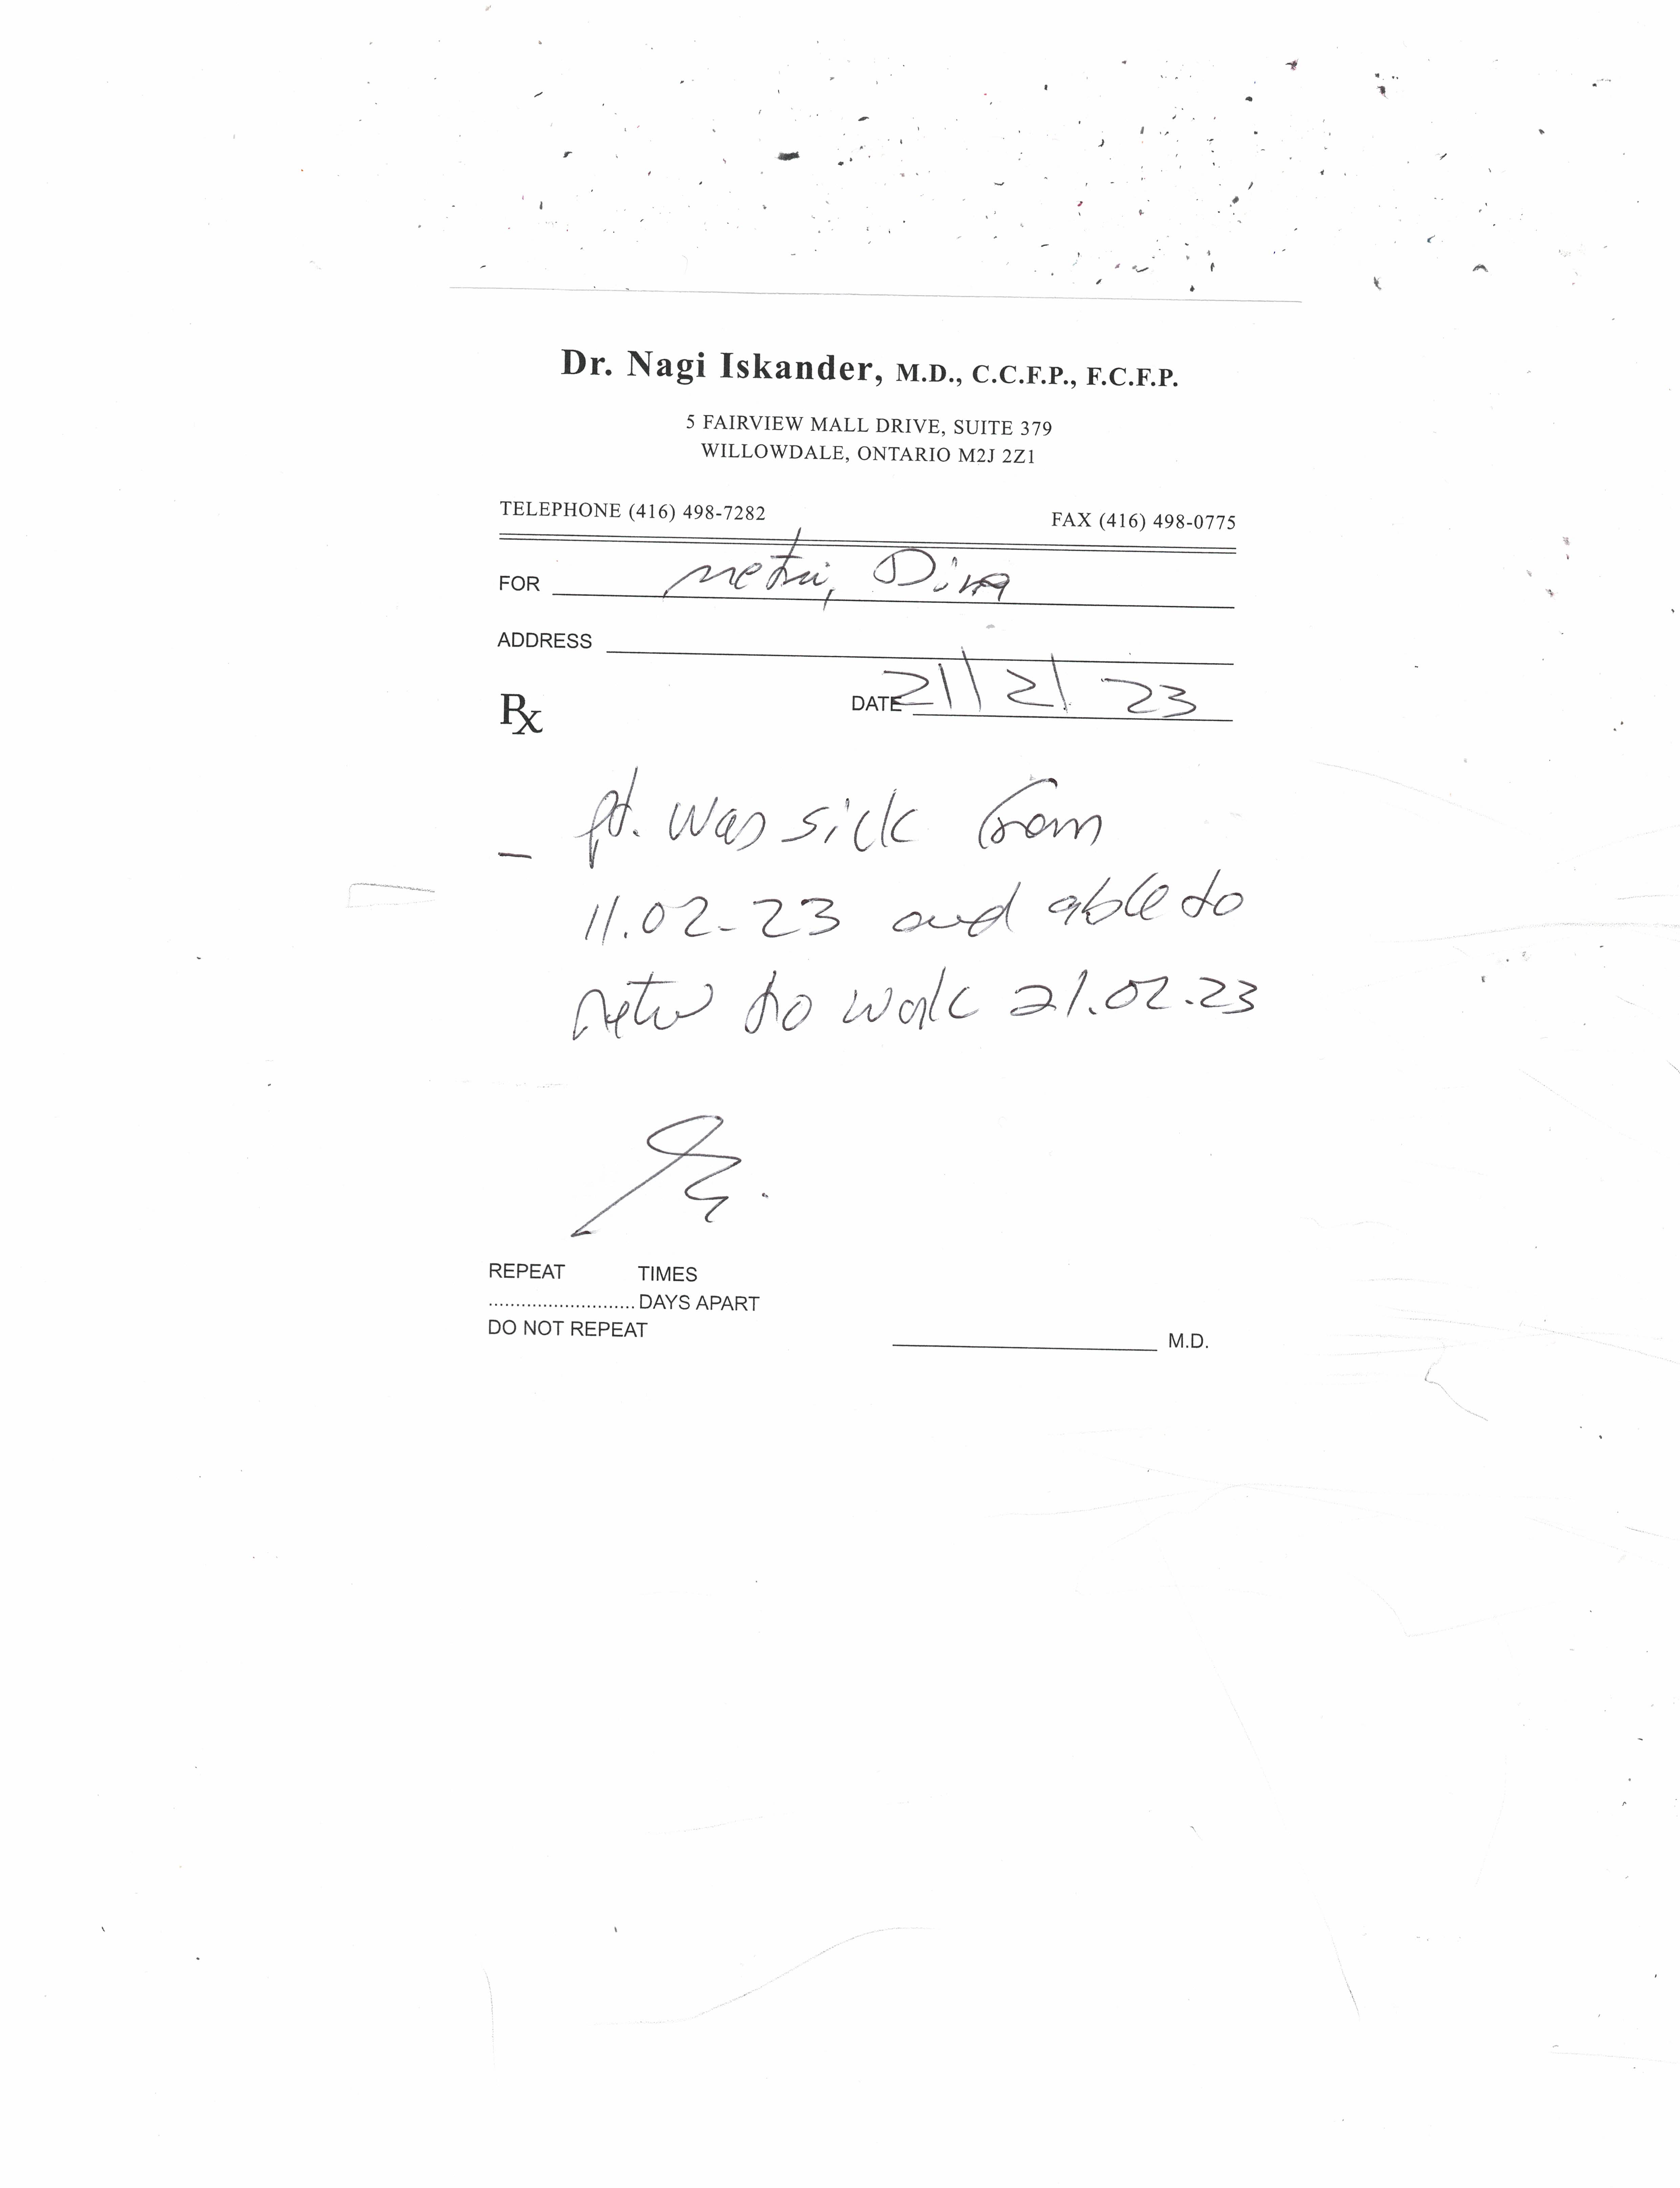 Dr. Nagi Iskander, M.D., C.C.F.P., F.C.F.P.
5 FAIRVIEW MALL DRIVE, SUITE 379
WILLOWDALE, ONTARIO M2J 2Z1
TELEPHONE (416) 498-7282 FAX (416) 498-0775
FOR Metri, Dina
ADDRESS
Rx DATE 21/2/23
pt. was sick from
11.02-23 and able to
retur to work 21.02.23
REPEAT TIMES
........................... DAYS APART
DO NOT REPEAT
M.D.